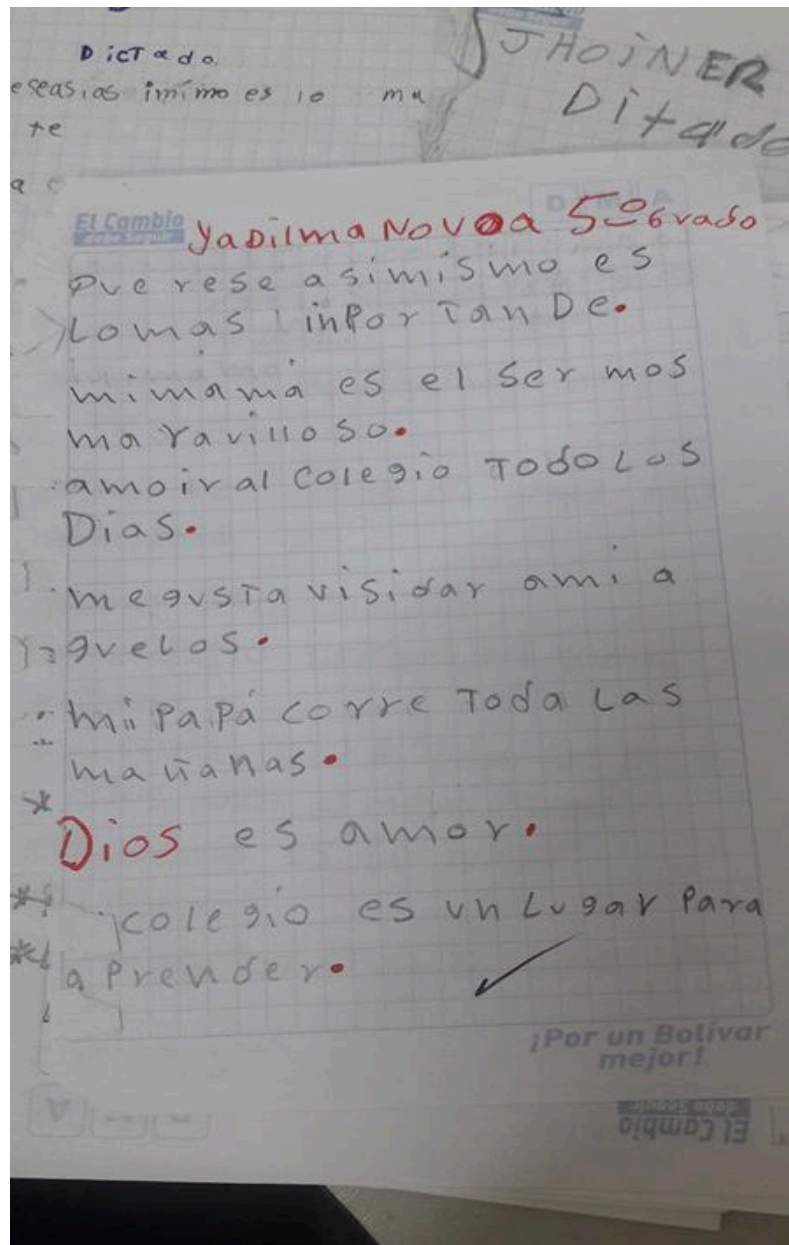 DicTado
eseasias imimo es lo ma
te
a
JHOiNER
Ditado
El Cambio
debe Seguir
D M A
YaDilma Novoa 5º Grado
Que rese asimismo es
Lomas inPorTanDe.
mimamá es el Ser mos
maravilloso.
amoiral colegio TodoLos
Dias.
megusTa visidar ami a
guelos.
mi PaPá corre Toda Las
mañanas.
Dios es amor.
colegio es un Lugar Para
aPrender.
¡Por un Bolívar
mejor!
El Cambio
debe Seguir